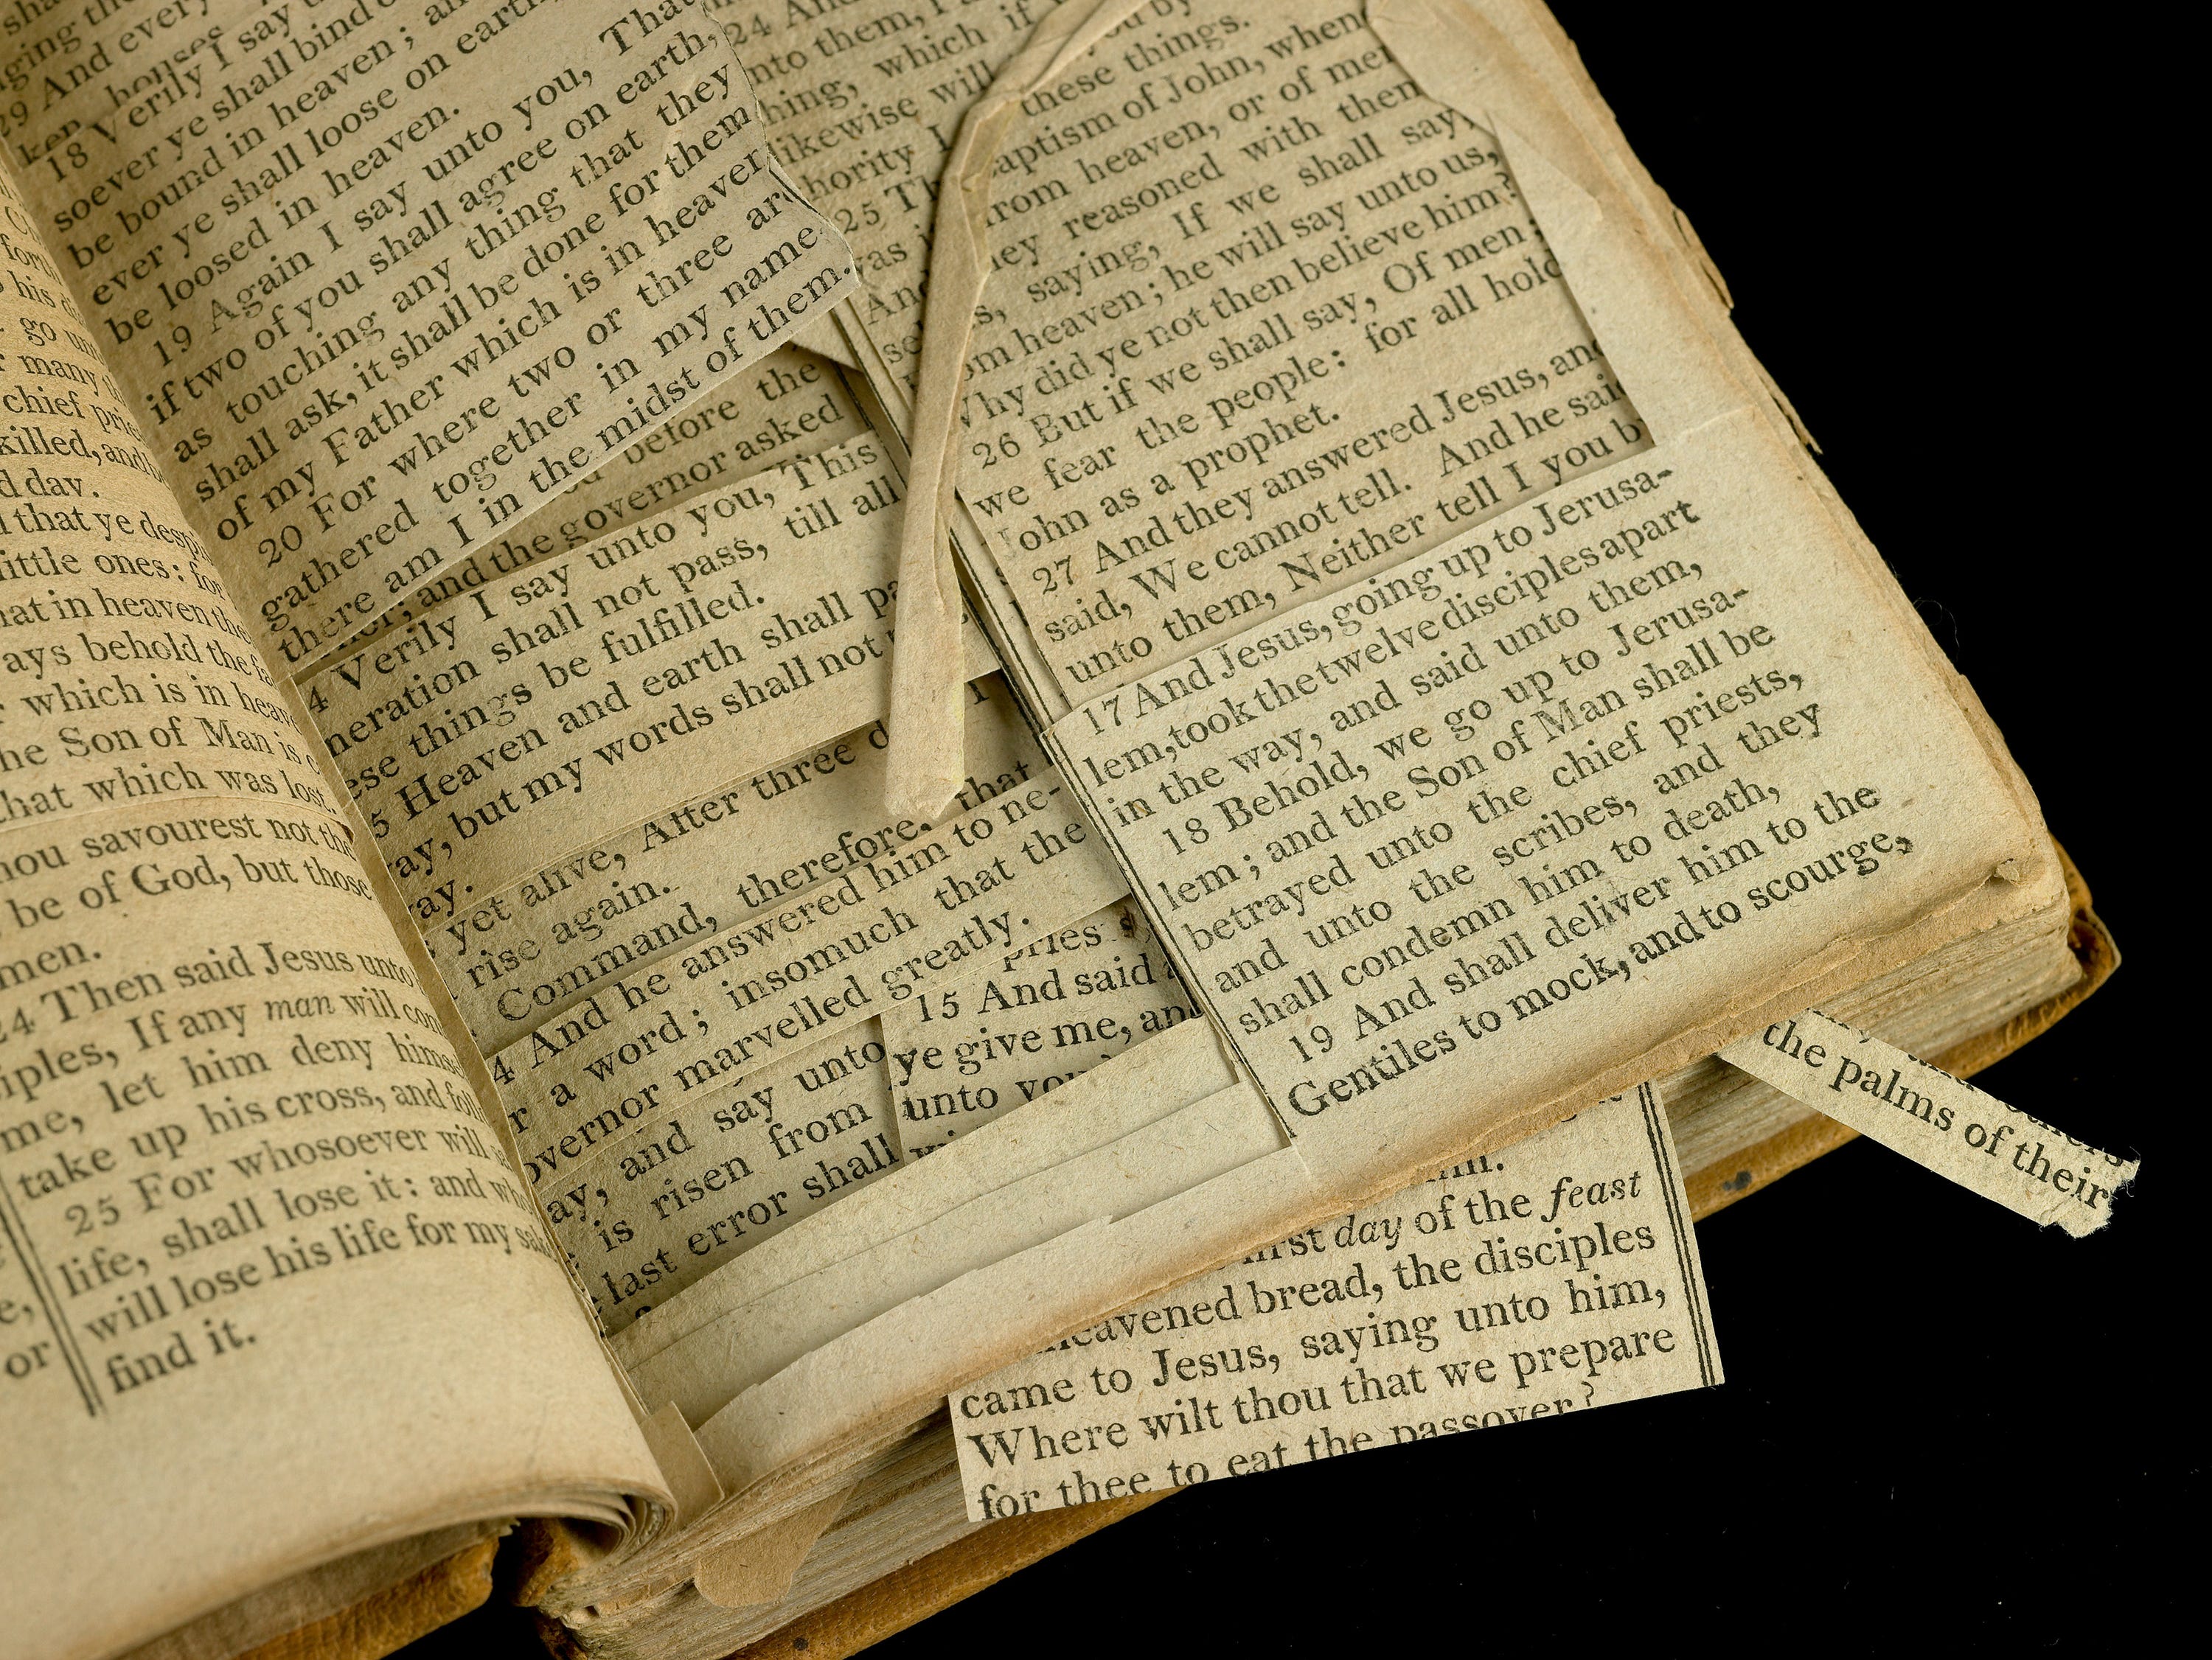 29 And every
18 Verily I say
soever ye shall bind
be bound in heaven; and
ever ye shall loose on earth,
be loosed in heaven.
19 Again I say unto you, That
if two of you shall agree on earth,
as touching any thing that they
shall ask, it shall be done for them
of my Father which is in heaven
20 For where two or three are
gathered together in my name
there am I in the midst of them.
go
many
chief
killed, and
day.
that ye
little ones: for
in heaven
behold the
which is in
the Son of Man is
that which was lost.
thou savourest not the
be of God, but those
men.
24 Then said Jesus unto
If any man will
me, let him deny
take up his cross, and
25 For whosoever will
life, shall lose it: and
or will lose his life for my
find it.
before the
and the governor asked
4 Verily I say unto you, This
shall not pass, till all
things be fulfilled.
5 Heaven and earth shall
but my words shall not
yet alive, After three
rise again.
Command, therefore, that
4 And he answered him to ne-
a word; insomuch that the
governor marvelled greatly.
and say unto
is risen from
last error shall
priests,
15 And said
ye give me, and
unto you
24 And
unto them, I
thing, which if
likewise will
you by
these things.
25 The baptism of John, when
was it from heaven, or of men
And they reasoned with them
saying, If we shall say,
From heaven; he will say unto us,
Why did ye not then believe him?
26 But if we shall say, Of men;
we fear the people: for all hold
John as a prophet.
27 And they answered Jesus, and
said, We cannot tell. And he said
unto them, Neither tell I you by
17 And Jesus, going up to Jerusa-
lem, took the twelve disciples apart
in the way, and said unto them,
18 Behold, we go up to Jerusa-
lem; and the Son of Man shall be
betrayed unto the chief priests,
and unto the scribes, and they
shall condemn him to death,
19 And shall deliver him to the
Gentiles to mock, and to scourge,
the palms of their
first day of the feast
bread, the disciples
came to Jesus, saying unto him,
Where wilt thou that we prepare
for thee to eat the passover?